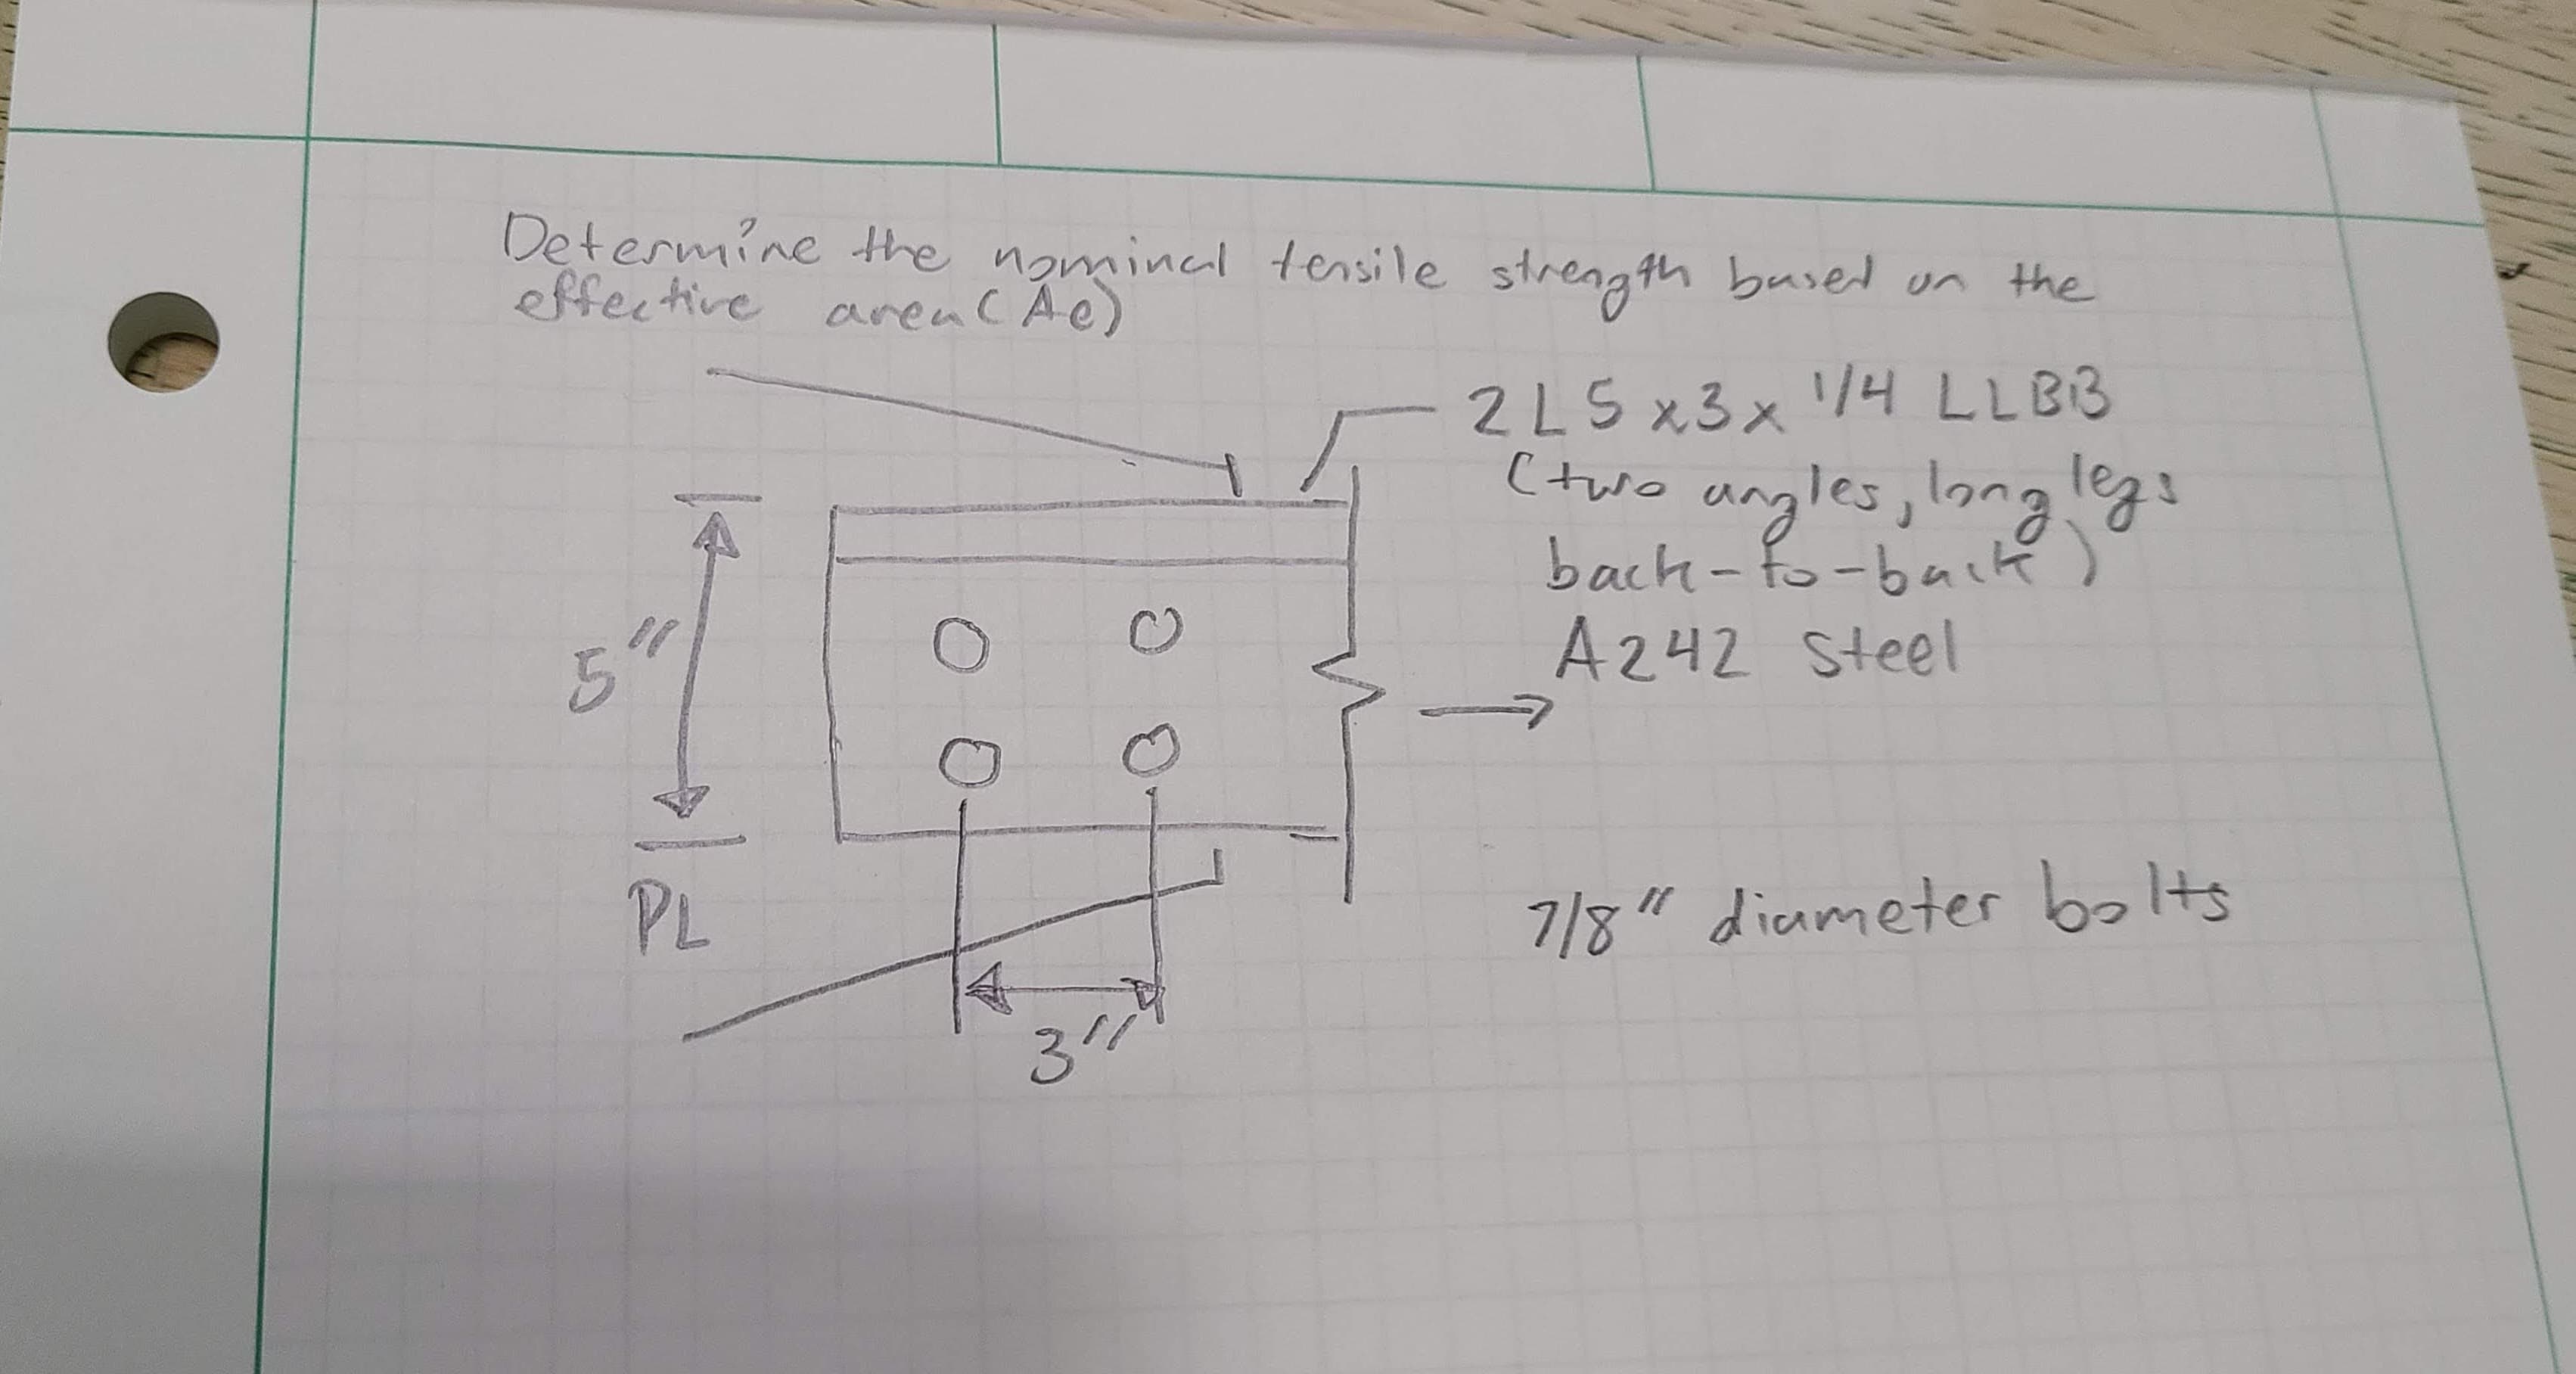 Determine the nominal tensile strength based on the
effective area (Ae)
2L5x3x1/4 LLBB
(two angles, long legs
back-to-back)
A242 steel
5"
PL
7/8" diameter bolts
3"